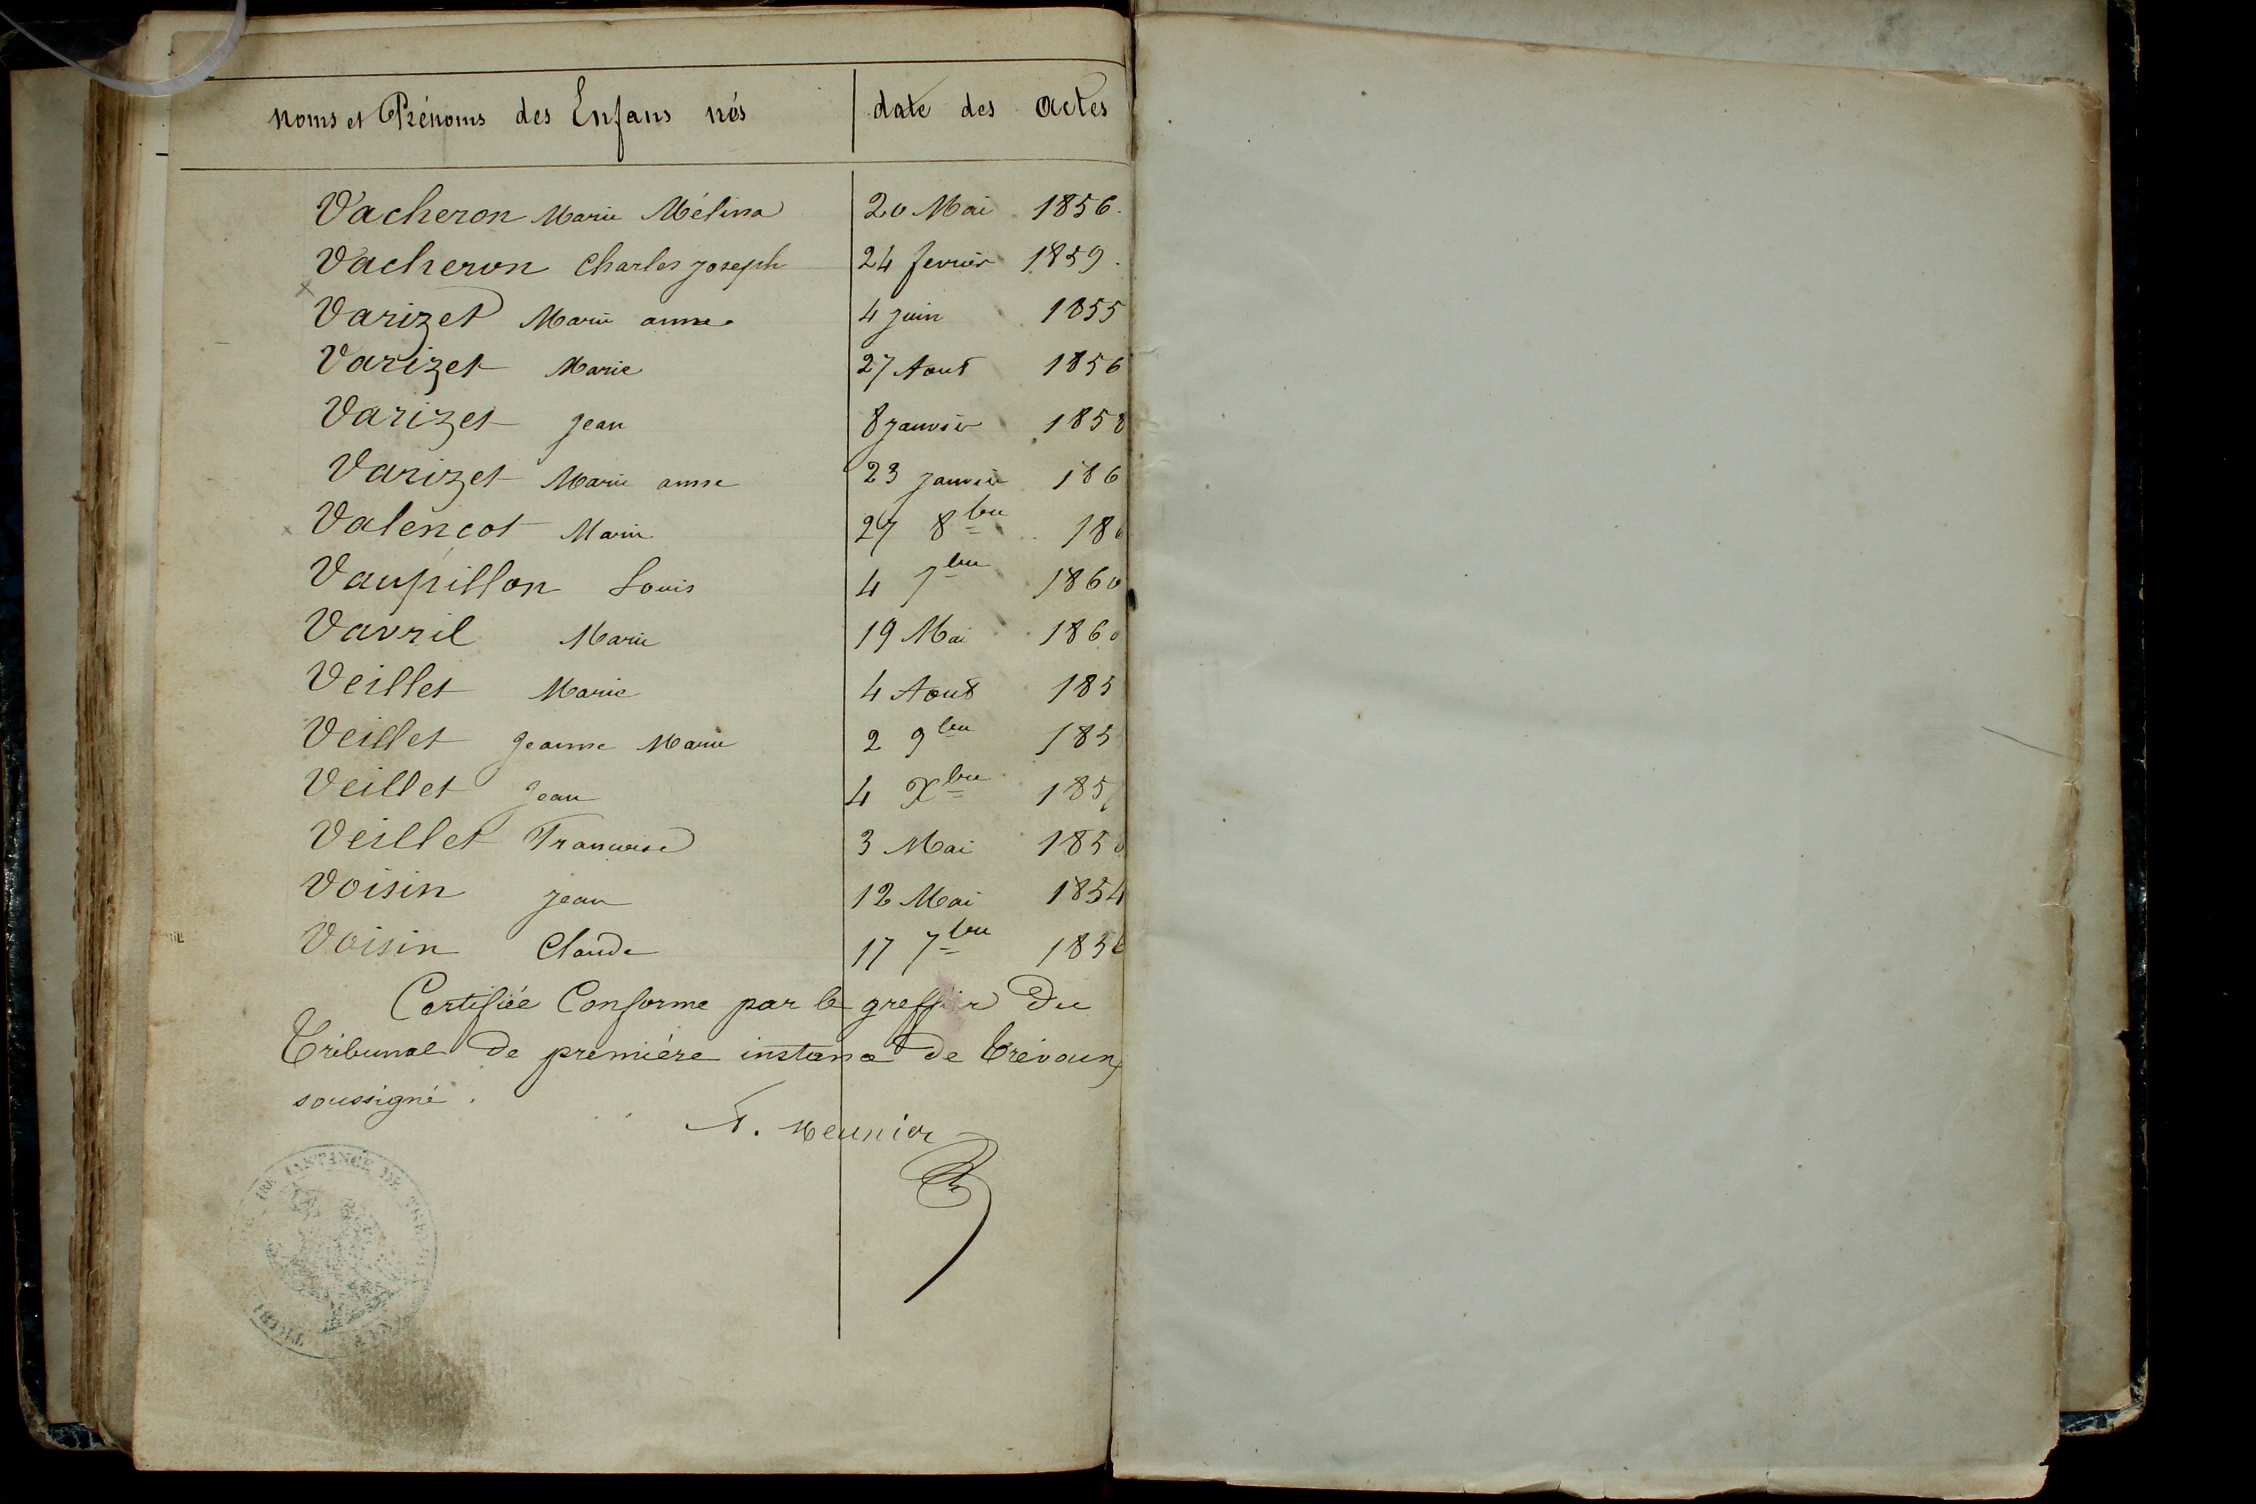 Noms et Prénoms des Enfans nés date des actes
Vacheron Marie Mélina 20 Mai 1856.
Vacheron Charles Joseph 24 fevrier 1859.
Varizet Marie anne 4 juin 1855
Varizet Marie 27 Aout 1856
Varizet Jean 8 Janvier 1858
Varizet Marie anne 23 Janvier 186
Valençot Marie 27 8bre 186
Vaupillon Louis 4 7bre 1860
Vavril Marie 19 Mai 1860
Veillet Marie 4 Aout 185
Veillet Jeanne Marie 2 9bre 185
Veillet Jean 4 Xbre 185
Veillet Francoise 3 Mai 185
Voisin Jean 12 Mai 1854
Voisin Claude 17 7bre 1856
Certifiée Conforme par le greffier Du
Tribunal De premiére instance De Trévoux
soussigné.
Meunier
INSTANCE DE